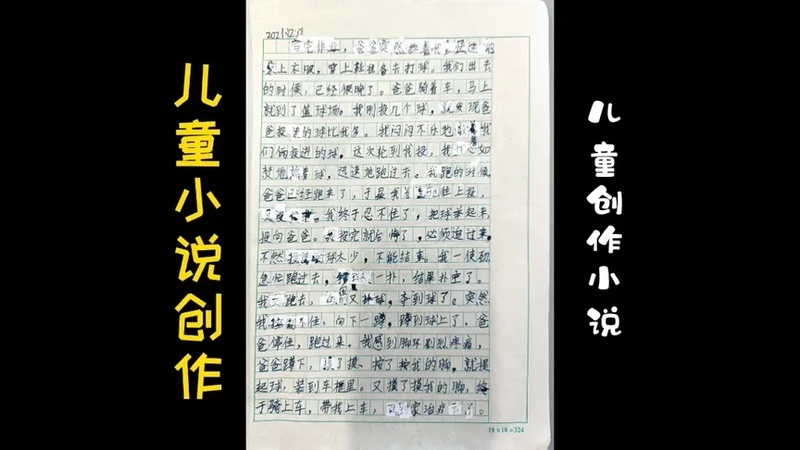 儿童小说创作
2021.12.12
写完作业，爸爸突然抱着我，迅速
穿上衣服，穿上鞋准备去打球。我们出去
的时候，已经很晚了。爸爸骑着车，马上
就到了篮球场。我刚投几个球，就发现爸
爸投进的球比我多。我闷闷不乐地数着我
们俩投进的球。这次轮到我投，我心如
焚地着球，迅速地跑过去。我跑的时候，
爸爸已经跑来了，于是我往上投，
又没。我终于忍不住了，把球拿起来，
投向爸爸。我投完就后悔了，必须追过来，
不然投的球太少，不能结束。我一使劲
急忙跑过去，一扑，结果扑空了。
我跑去，又扑球，拿到球了。突然
我不住，向下一蹲，蹲到球上了。爸
爸停住，跑过来。我感到脚环剧剧疼痛，
爸爸蹲下，摸了摸、按了按我的脚。就提
起球，装到车框里。又摸了摸我的脚，终
于骑上车，带我上车，回到家治疗了。
18×18=324
儿童创作小说